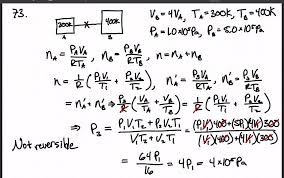 73.
300K
400K
A
B
V_B = 4V_A, T_A = 300K, T_B = 400K
P_A = 1.0×10⁵Pa
P_B = 5.0×10⁵Pa
n_A = P_A V_A / RT_A, n_B = P_B V_B / RT_B, n = n_A + n_B
n = 1/R (P_1V_1/T_1 + P_2V_2/T_2), n'_A = P_3V_A/RT_A, n'_B = P_3V_B/RT_B
= n'_A + n'_B ⇒ P_3/R (V_A/T_A + V_B/T_B) = 1/R (P_1V_1/T_1 + P_2V_2/T_2)
⇒ P_3 = (P_1V_1T_2 + P_2V_2T_1) / (V_1T_2 + V_2T_1) = ((P_1V_1)400 + (5P_1)(4V_1)300) / ((V_1)(400) + (4V_1)(300))
Not reversible
= 64P_1/16 = 4P_1 = 4×10⁵Pa